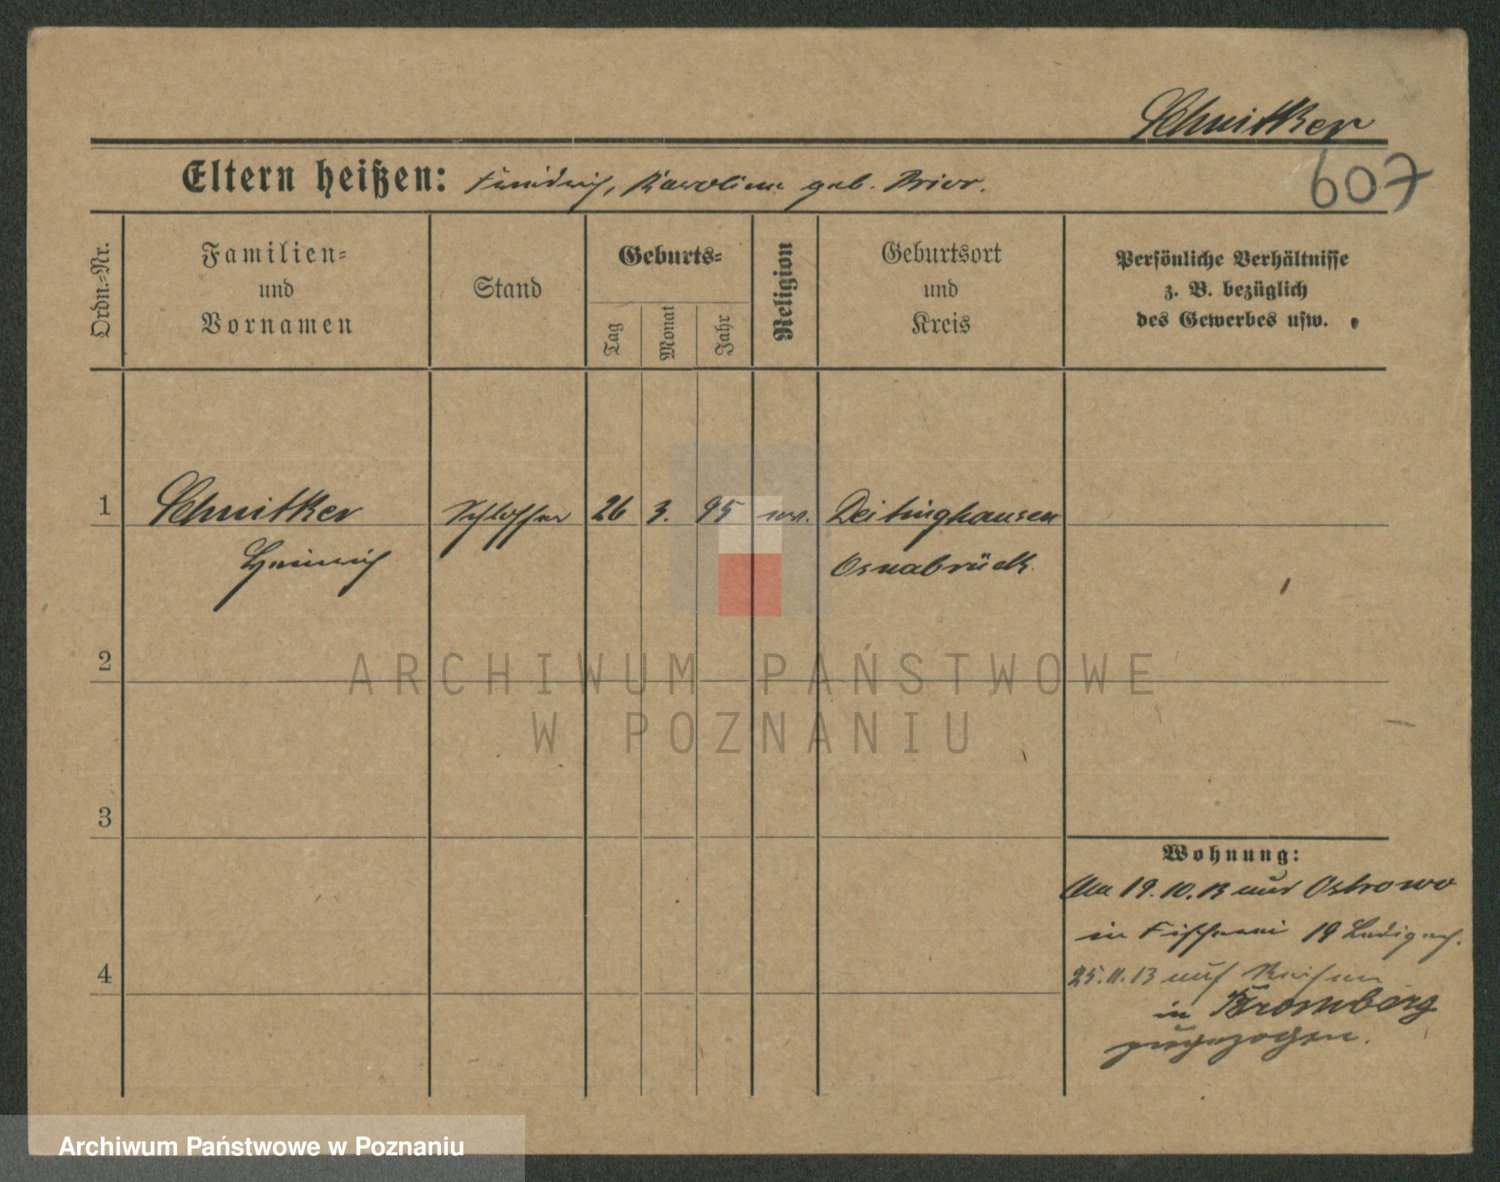 Schnitker
607
Eltern heißen: Friedrich, Karoline geb. Brior.
Ordn.-Nr.
Familien-
und
Vornamen
Stand
Geburts-
Tag
Monat
Jahr
Religion
Geburtsort
und
Kreis
Persönliche Verhältnisse
z. B. bezüglich
des Gewerbes usw.
1 Schnitker Schlosser 26 3. 95 ev. Deitinghausen
Heinrich Osnabrück
2
3
4
Wohnung:
Am 19.10.13 aus Ostrowo
in Fischerei 19
25.11.13 auf Reisen
in Bromberg
zugezogen.
ARCHIWUM PAŃSTWOWE
W POZNANIU
Archiwum Państwowe w Poznaniu